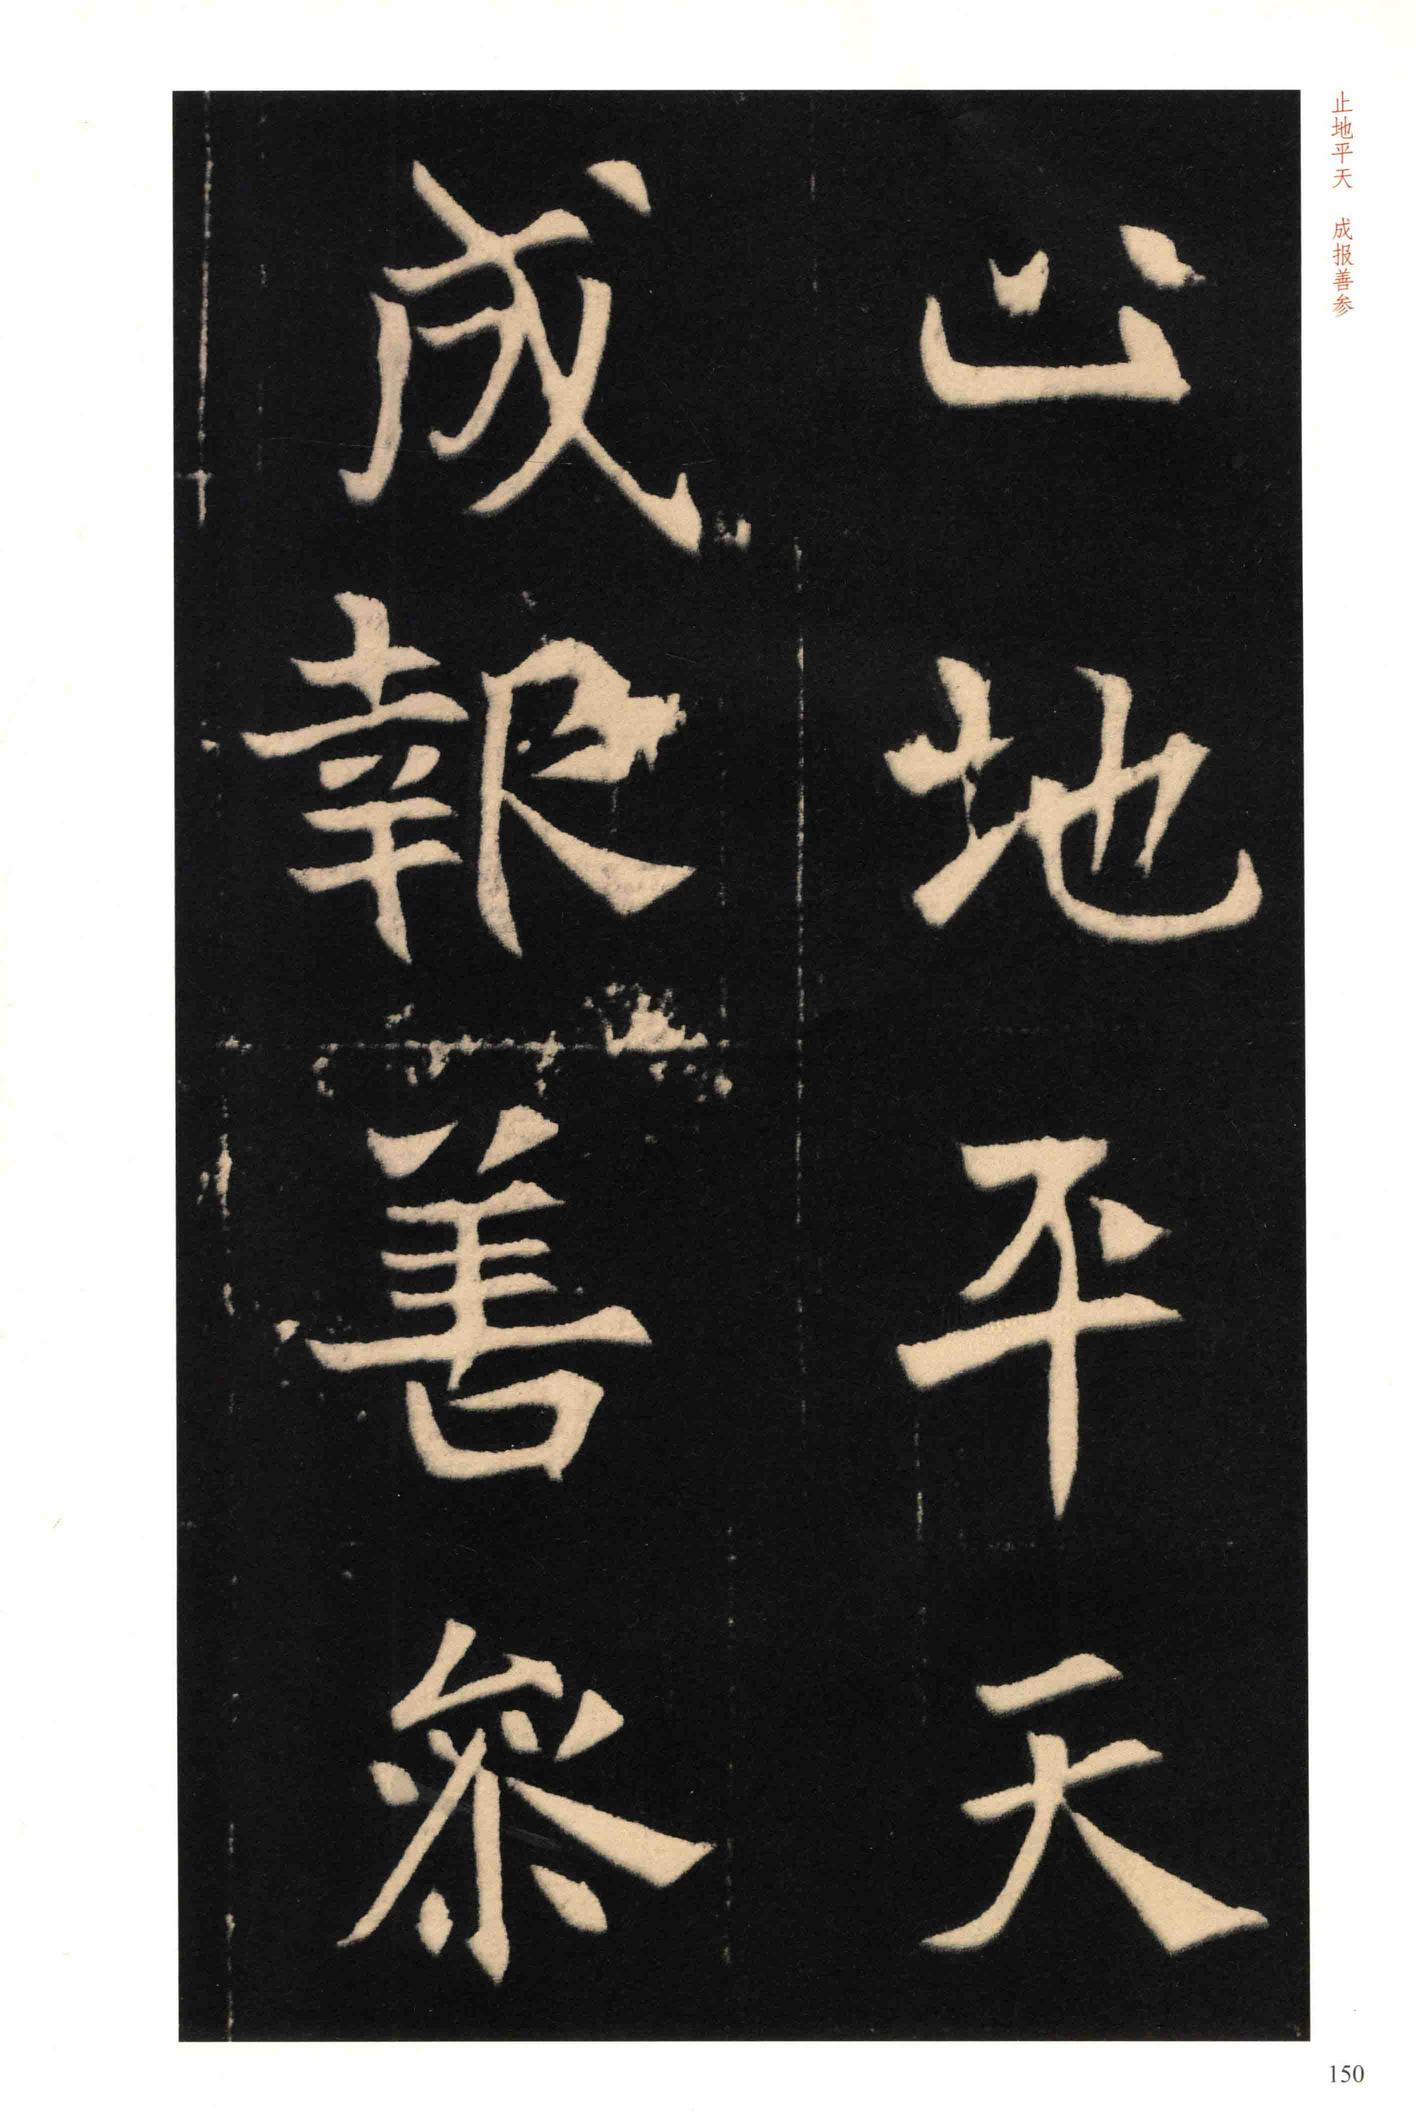 止地平天　成报善参
止地平天
成報善參
150